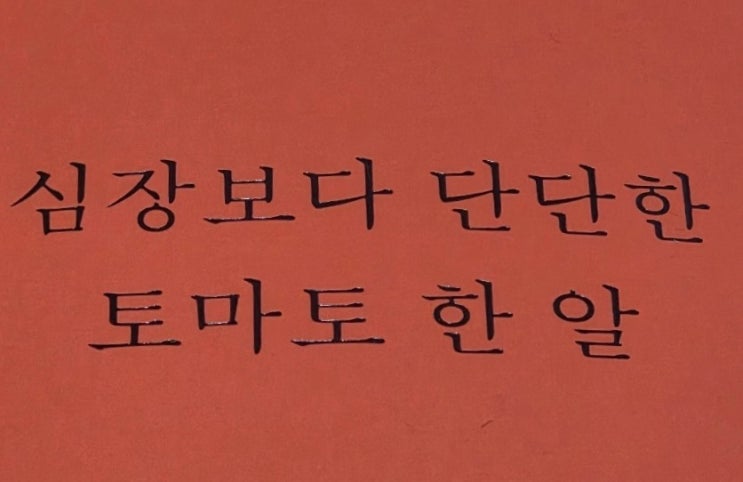 심장보다 단단한
토마토 한 알